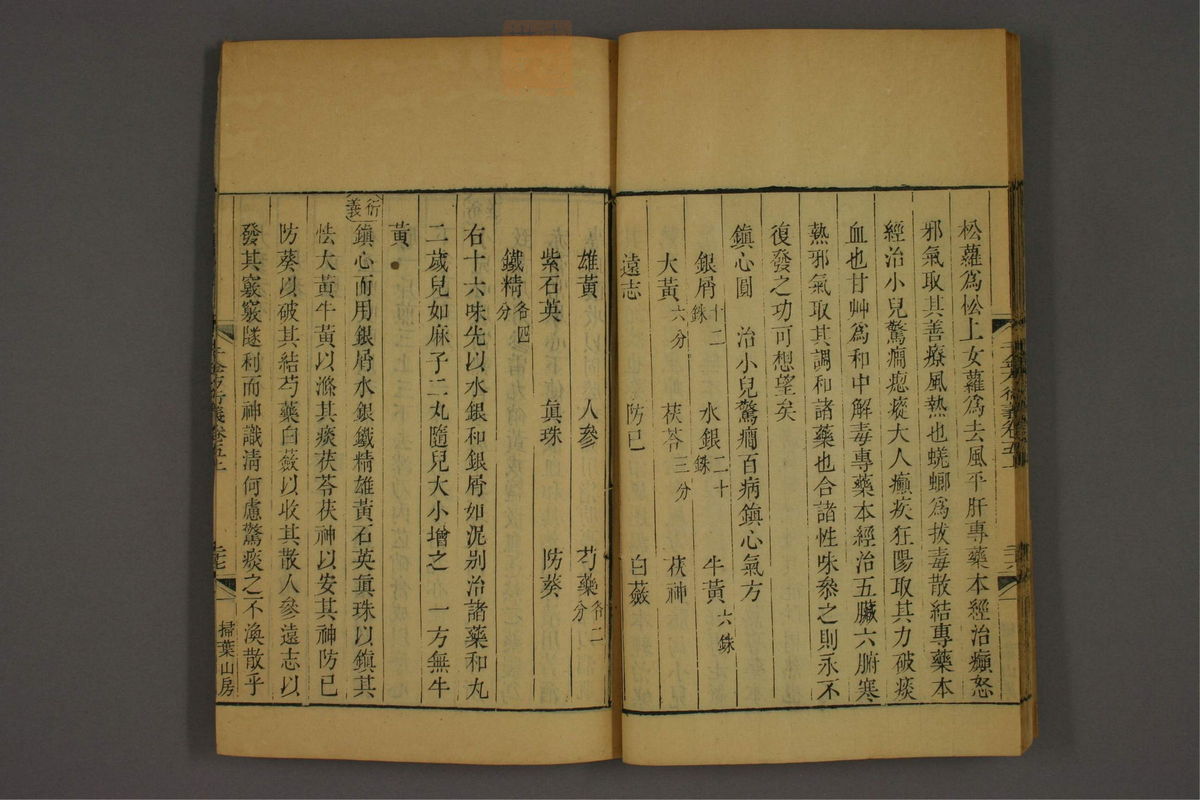 松蘿爲松上女蘿爲去風平肝專藥本經治癲怒
邪氣取其善療風熱也蜣螂爲拔毒散結專藥本
經治小兒驚癎瘛瘲大人癲疾狂陽取其力破痰
血也甘艸爲和中解毒專藥本經治五臟六腑寒
熱邪氣取其調和諸藥也合諸性味叅之則永不
復發之功可想望矣
鎮心圓　治小兒驚癎百病鎮心氣方
銀屑十二銖　水銀二十銖　牛黃六銖
大黃六分　茯苓三分　茯神
遠志　防已　白蘞
雄黃　人參　芍藥各二分
紫石英　眞珠　防葵
鐵精各四分
右十六味先以水銀和銀屑如泥别治諸藥和丸
二歲兒如麻子二丸隨兒大小增之　一方無牛
黃
衍義
鎮心而用銀屑水銀鐵精雄黃石英眞珠以鎮其
怯大黃牛黃以滌其痰茯苓茯神以安其神防已
防葵以破其結芍藥白蘞以收其散人參遠志以
發其竅竅隧利而神識清何慮驚痰之不渙散乎
千金方衍義卷五上
掃葉山房